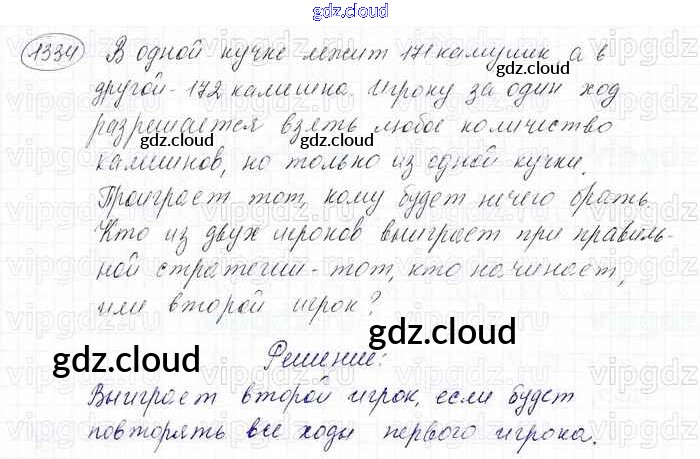 gdz.cloud
1334 В одной кучке лежит 171 камушик а в
другой - 172 камешка. Игроку за один ход
разрешается взять любое количество
камешков, но только из одной кучки.
Проиграет тот, кому будет нечего брать.
Кто из двух игроков выиграет при правиль-
ной стратегии - тот, кто начинает,
или второй игрок?
Решение:
Выиграет второй игрок, если будет
повторять все ходы первого игрока.
gdz.cloud
gdz.cloud
gdz.cloud
gdz.cloud
gdz.cloud
gdz.cloud